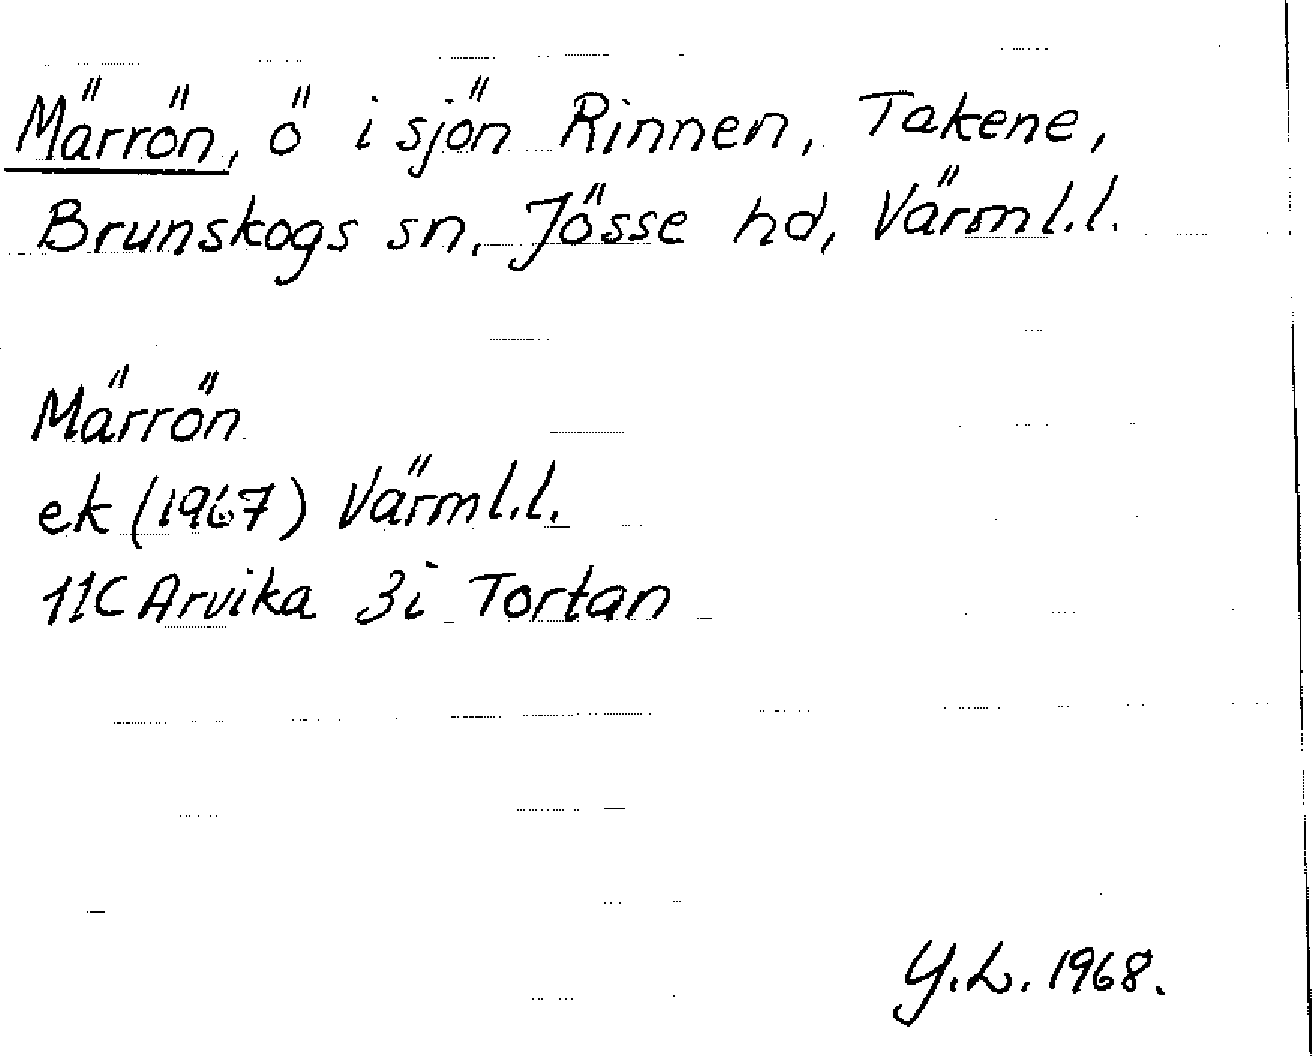 Märrön, ö i sjön Rinnen, Takene,
Brunskogs sn, Jösse hd, Värml.l.
Märrön
ek (1967) Värml.l.
11C Arvika 3i Tortan
Y.L. 1968.